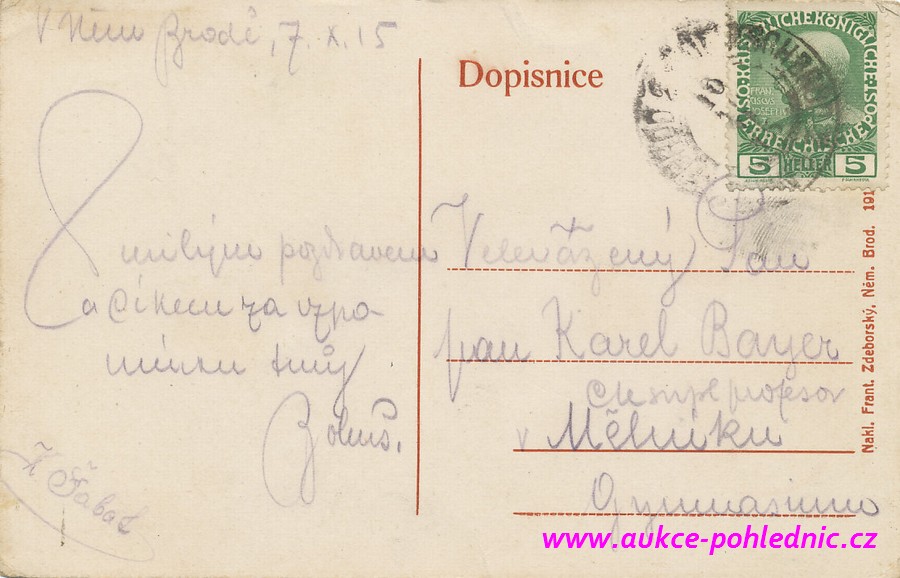 V Něm Brodě, 7. X. 15
Dopisnice
K. K. ÖSTERREICHISCHE POST
5 HELLER 5
S milým pozdravem
a díkem za vzpo-
mínku tvůj
Velevážený Pan
pan Karel Bayer
profesor
v Mělníku
Gymnasium
Nakl. Frant. Zdeborský, Něm. Brod. 191
www.aukce-pohlednic.cz